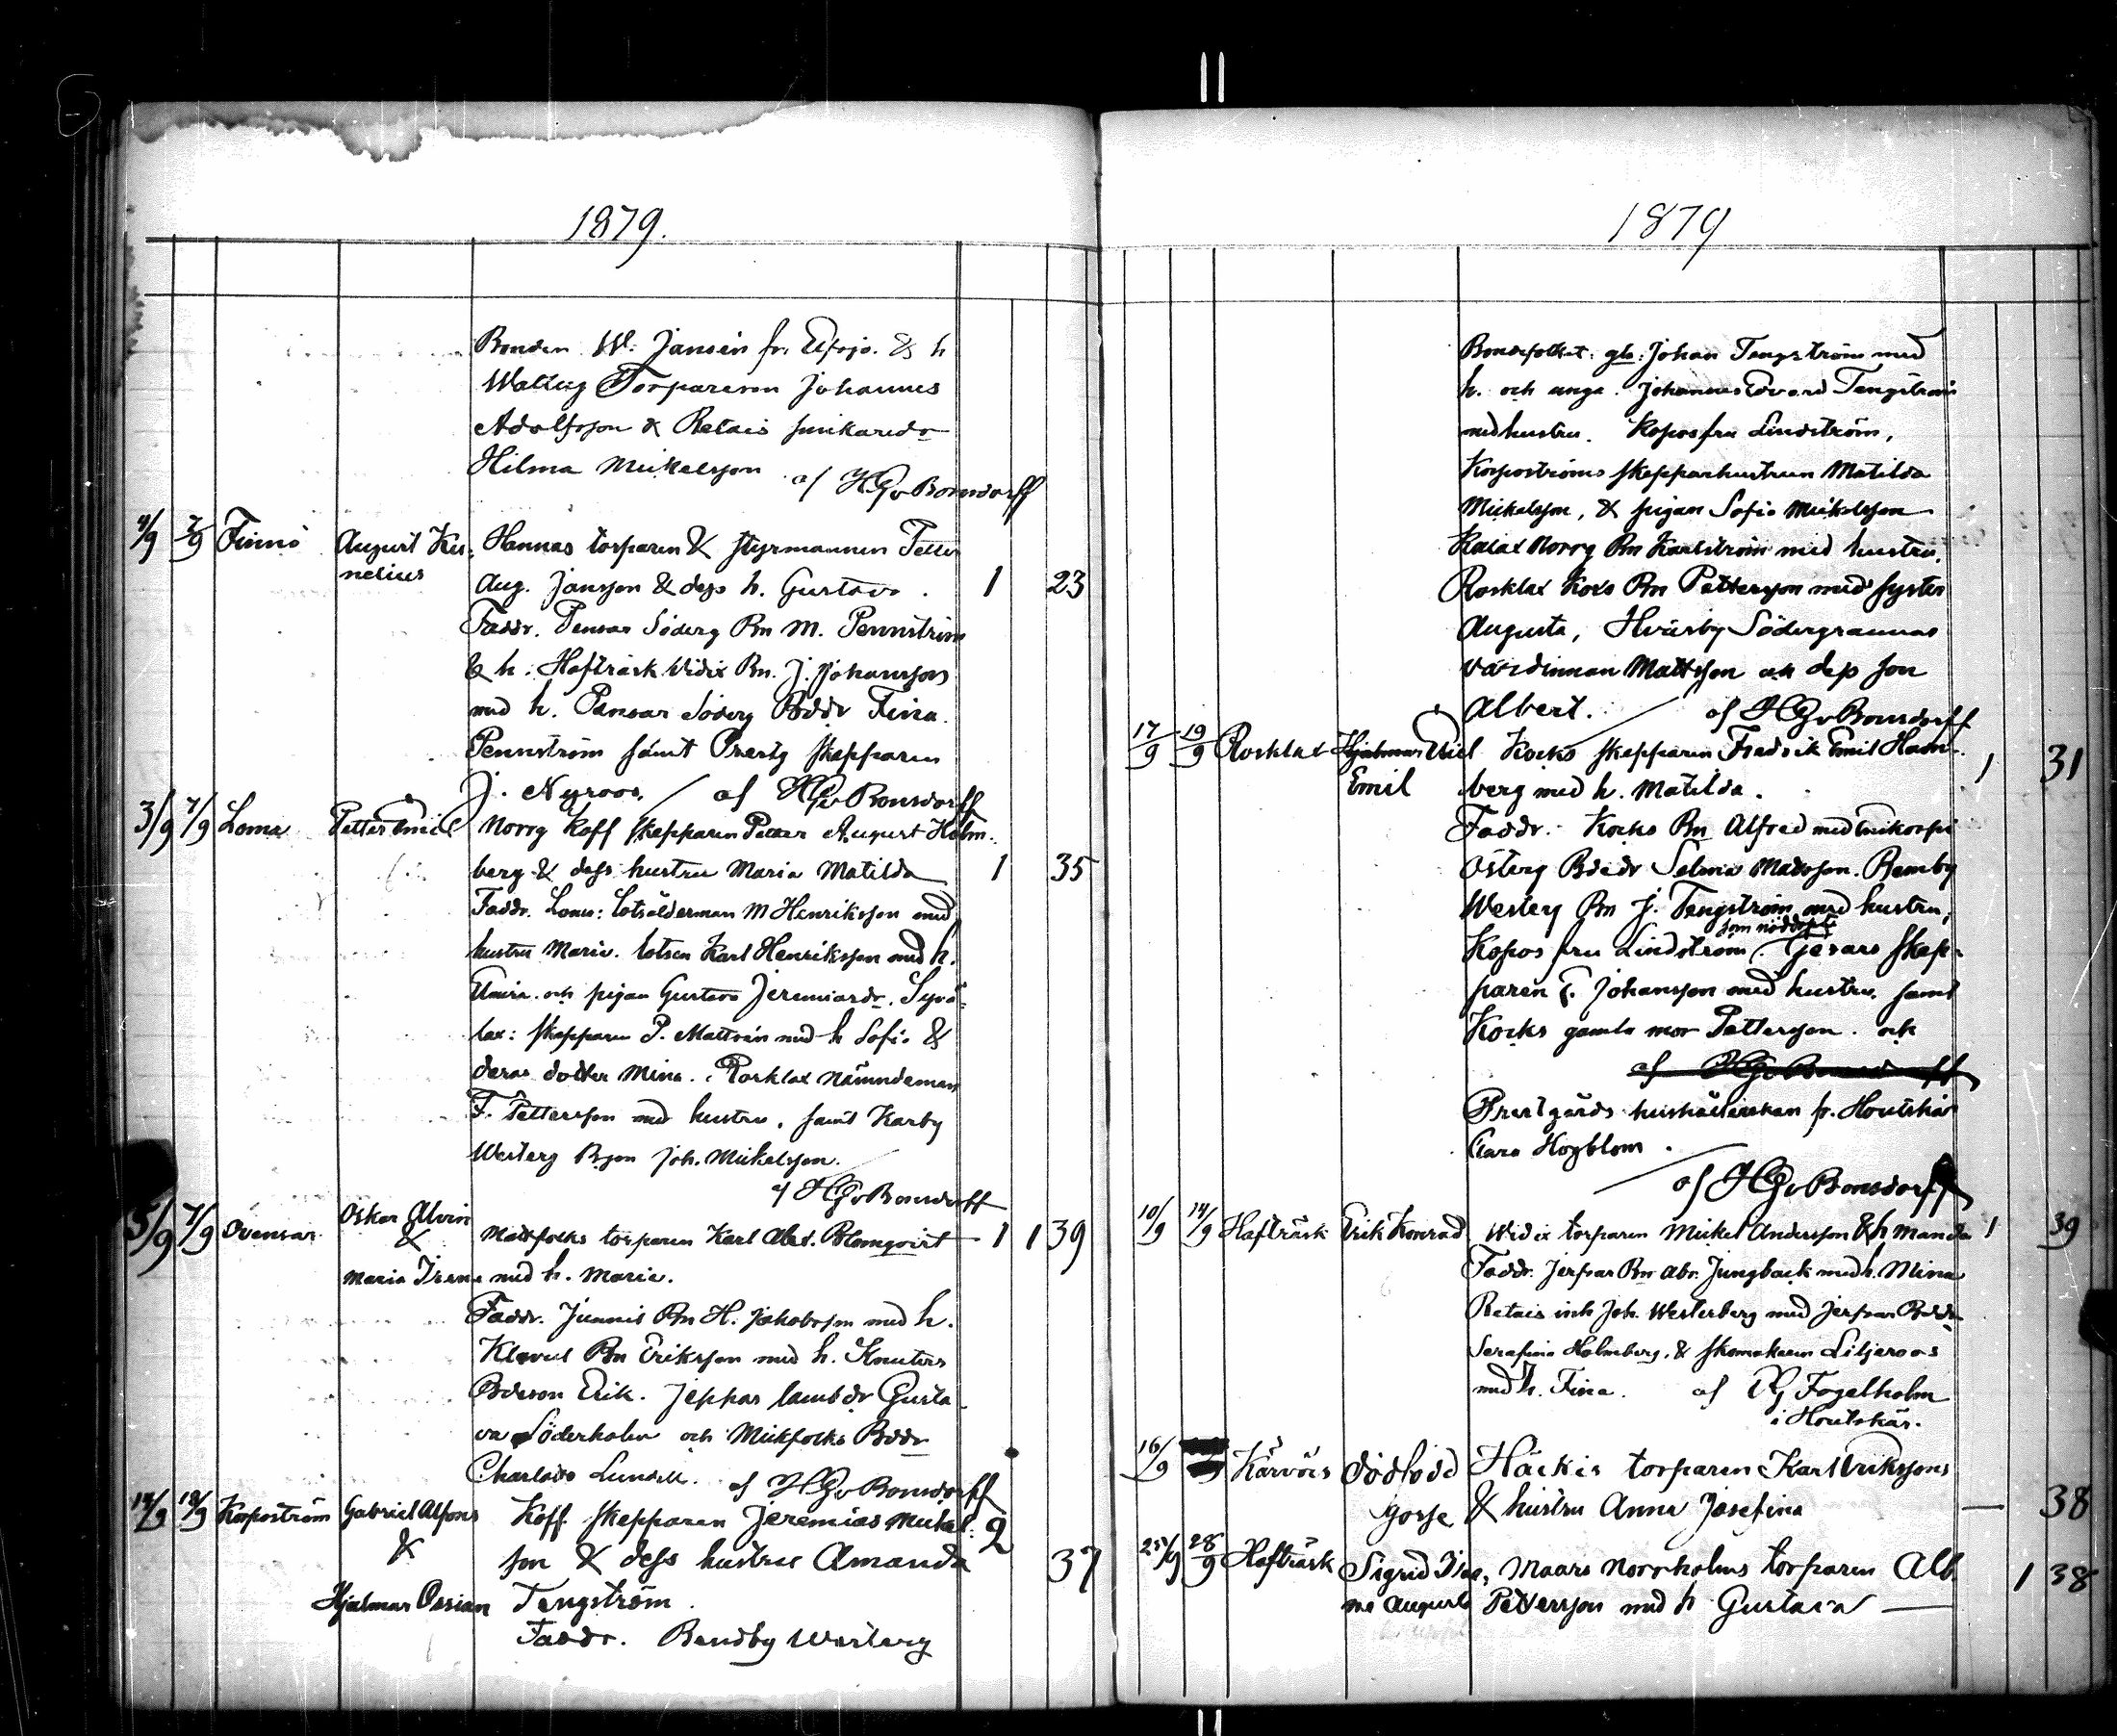 1879.
Bonden W. Jansén fr. & h
Wattug Torparesonen Johannes
Adolfsson & Retais
Hilma Mickelsson af HGvBonsdorff
4/9 7/9 Finnö August Kor- Hannas torparen & styrmannen Petter
nelius Aug. Jansson & dess h. Gustava. 1 23
Faddr. Pensar Söderg Bn M. Pennström
& h. Hafträsk Widix Bn. J. Johansson
med h. Pensar Söderg Bddr Fina
Pennström samt Prestg skepparen
J. Nyroos. / af HGvBonsdorff
3/9 7/9 Loma Petter Emil Norrg Koff skepparen Petter August Holm-
berg & dess hustru Maria Matilda 1 35
Faddr. Loma: Lotsålderman M Henriksson med
hustru Maria. lotsen Karl Henriksson med h.
och pigan Gustava Jeremiasdr.
lax: skepparen P. Mattsson med h Sofia &
deras dotter Mina. Rosklax Nämndeman
F. Pettersson med hustru, samt Karby
Westerg Bson Joh. Mickelsson.
af HGvBonsdorff
5/9 7/9 Ovensor Oskar Alvin
& Mattfolks torparen Karl Alex. Blomqvist 1 1 39
Maria Irene med h. Maria.
Faddr. Junnis Bn H. Jakobsson med h.
Klevus Bn Eriksson med h. Knuters
Bdeson Erik. Jeppas lambdr Gusta
va Söderholm och Mickfolks Bddr
Charlotta Lundell. af HGvBonsdorff
14/9 18/9 Korpoström Gabriel Alfons Koff skepparen Jeremias Mickel- 2
& son & dess hustru Amanda 37
Hjalmar Ossian Tengström.
Faddr. Bendby Westerg
1879
Bondefolket: gla: Johan Tengström med
h. och unga. Johannes Edvard Tengström
med hustru. Kopos fru Lindström,
Korpoströms skepparhustrun Matilda
Mickelsson, & pigan Sofia Mickelsson
Kalax Norrg Bn Karlström med hustru.
Rosklax Kocks Bn Pettersson med syster
Augusta, Hväsby Södergrannas
värdinnan Mattsson och dess son
Albert. / af HGvBonsdorff
17/9 19/9 Rosklax Hjalmar Uriel Kocks skepparen Fredrik Emil Holm- 1 31
Emil berg med h. Matilda.
Faddr. Kocks Bn Alfred med
Österg Bdedr Selma Mattsson. Bemby
Westerg Bn J. Tengström med hustru,
som nöddopt
Kopos fru Lindström. Gevars skep-
paren F. Johansson med hustru, samt
Kocks gamla mor Pettersson. och
af HGvBonsdorff
Prestgårds hushållerskan fr. Houtskär
Clara Högblom.
af HGvBonsdorff
10/9 14/9 Hafträsk Erik Konrad Widix torparen Mickel Andersson & h Manda 1 39
Faddr. Jerfsar Bn Abr. Jungback med h. Mina
Retais inh Joh. Westerberg med Jerfsar Bddr
Serafina Holmberg, & skomakaren Liljeroos
med h. Fina. af Fogelholm
i Houtskär.
16/9 Kärvois dödfödd Häckis torparen Karl Erikssons
gosse & hustru Anna Josefina — 38
25/9 28/9 Hafträsk Sigrid Maars Norrholms torparen Alb. 1 38
Augusta Pettersson med h Gustava —